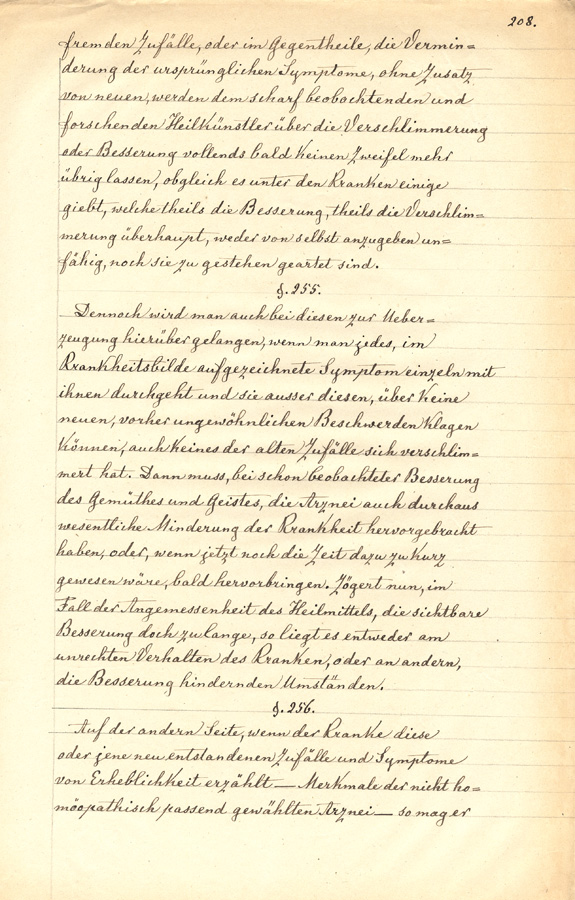 208.
fremden Zufälle, oder im Gegentheile, die Vermin=
derung der ursprünglichen Symptome, ohne Zusatz
von neuen, werden dem scharf beobachtenden und
forschenden Heilkünstler über die Verschlimmerung
oder Besserung vollends bald keinen Zweifel mehr
übrig lassen, obgleich es unter den Kranken einige
giebt, welche theils die Besserung, theils die Verschlim=
merung überhaupt, weder von selbst anzugeben un=
fähig, noch sie zu gestehen geartet sind.
§. 255.
Dennoch wird man auch bei diesen zur Ueber=
zeugung hierüber gelangen, wenn man jedes, im
Krankheitsbilde aufgezeichnete Symptom einzeln mit
ihnen durchgeht und sie ausser diesen, über keine
neuen, vorher ungewöhnlichen Beschwerden klagen
können, auch keines der alten Zufälle sich verschlim=
mert hat. Dann muss, bei schon beobachteter Besserung
des Gemüthes und Geistes, die Arznei auch durchaus
wesentliche Minderung der Krankheit hervorgebracht
haben, oder, wenn jetzt noch die Zeit dazu zu kurz
gewesen wäre, bald hervorbringen. Zögert nun, im
Fall der Angemessenheit des Heilmittels, die sichtbare
Besserung doch zu lange, so liegt es entweder am
unrechten Verhalten des Kranken, oder an andern,
die Besserung hindernden Umständen.
§. 256.
Auf der andern Seite, wenn der Kranke diese
oder jene neu entstandenen Zufälle und Symptome
von Erheblichkeit erzählt — Merkmale der nicht ho=
möopathisch passend gewählten Arznei — so mag er